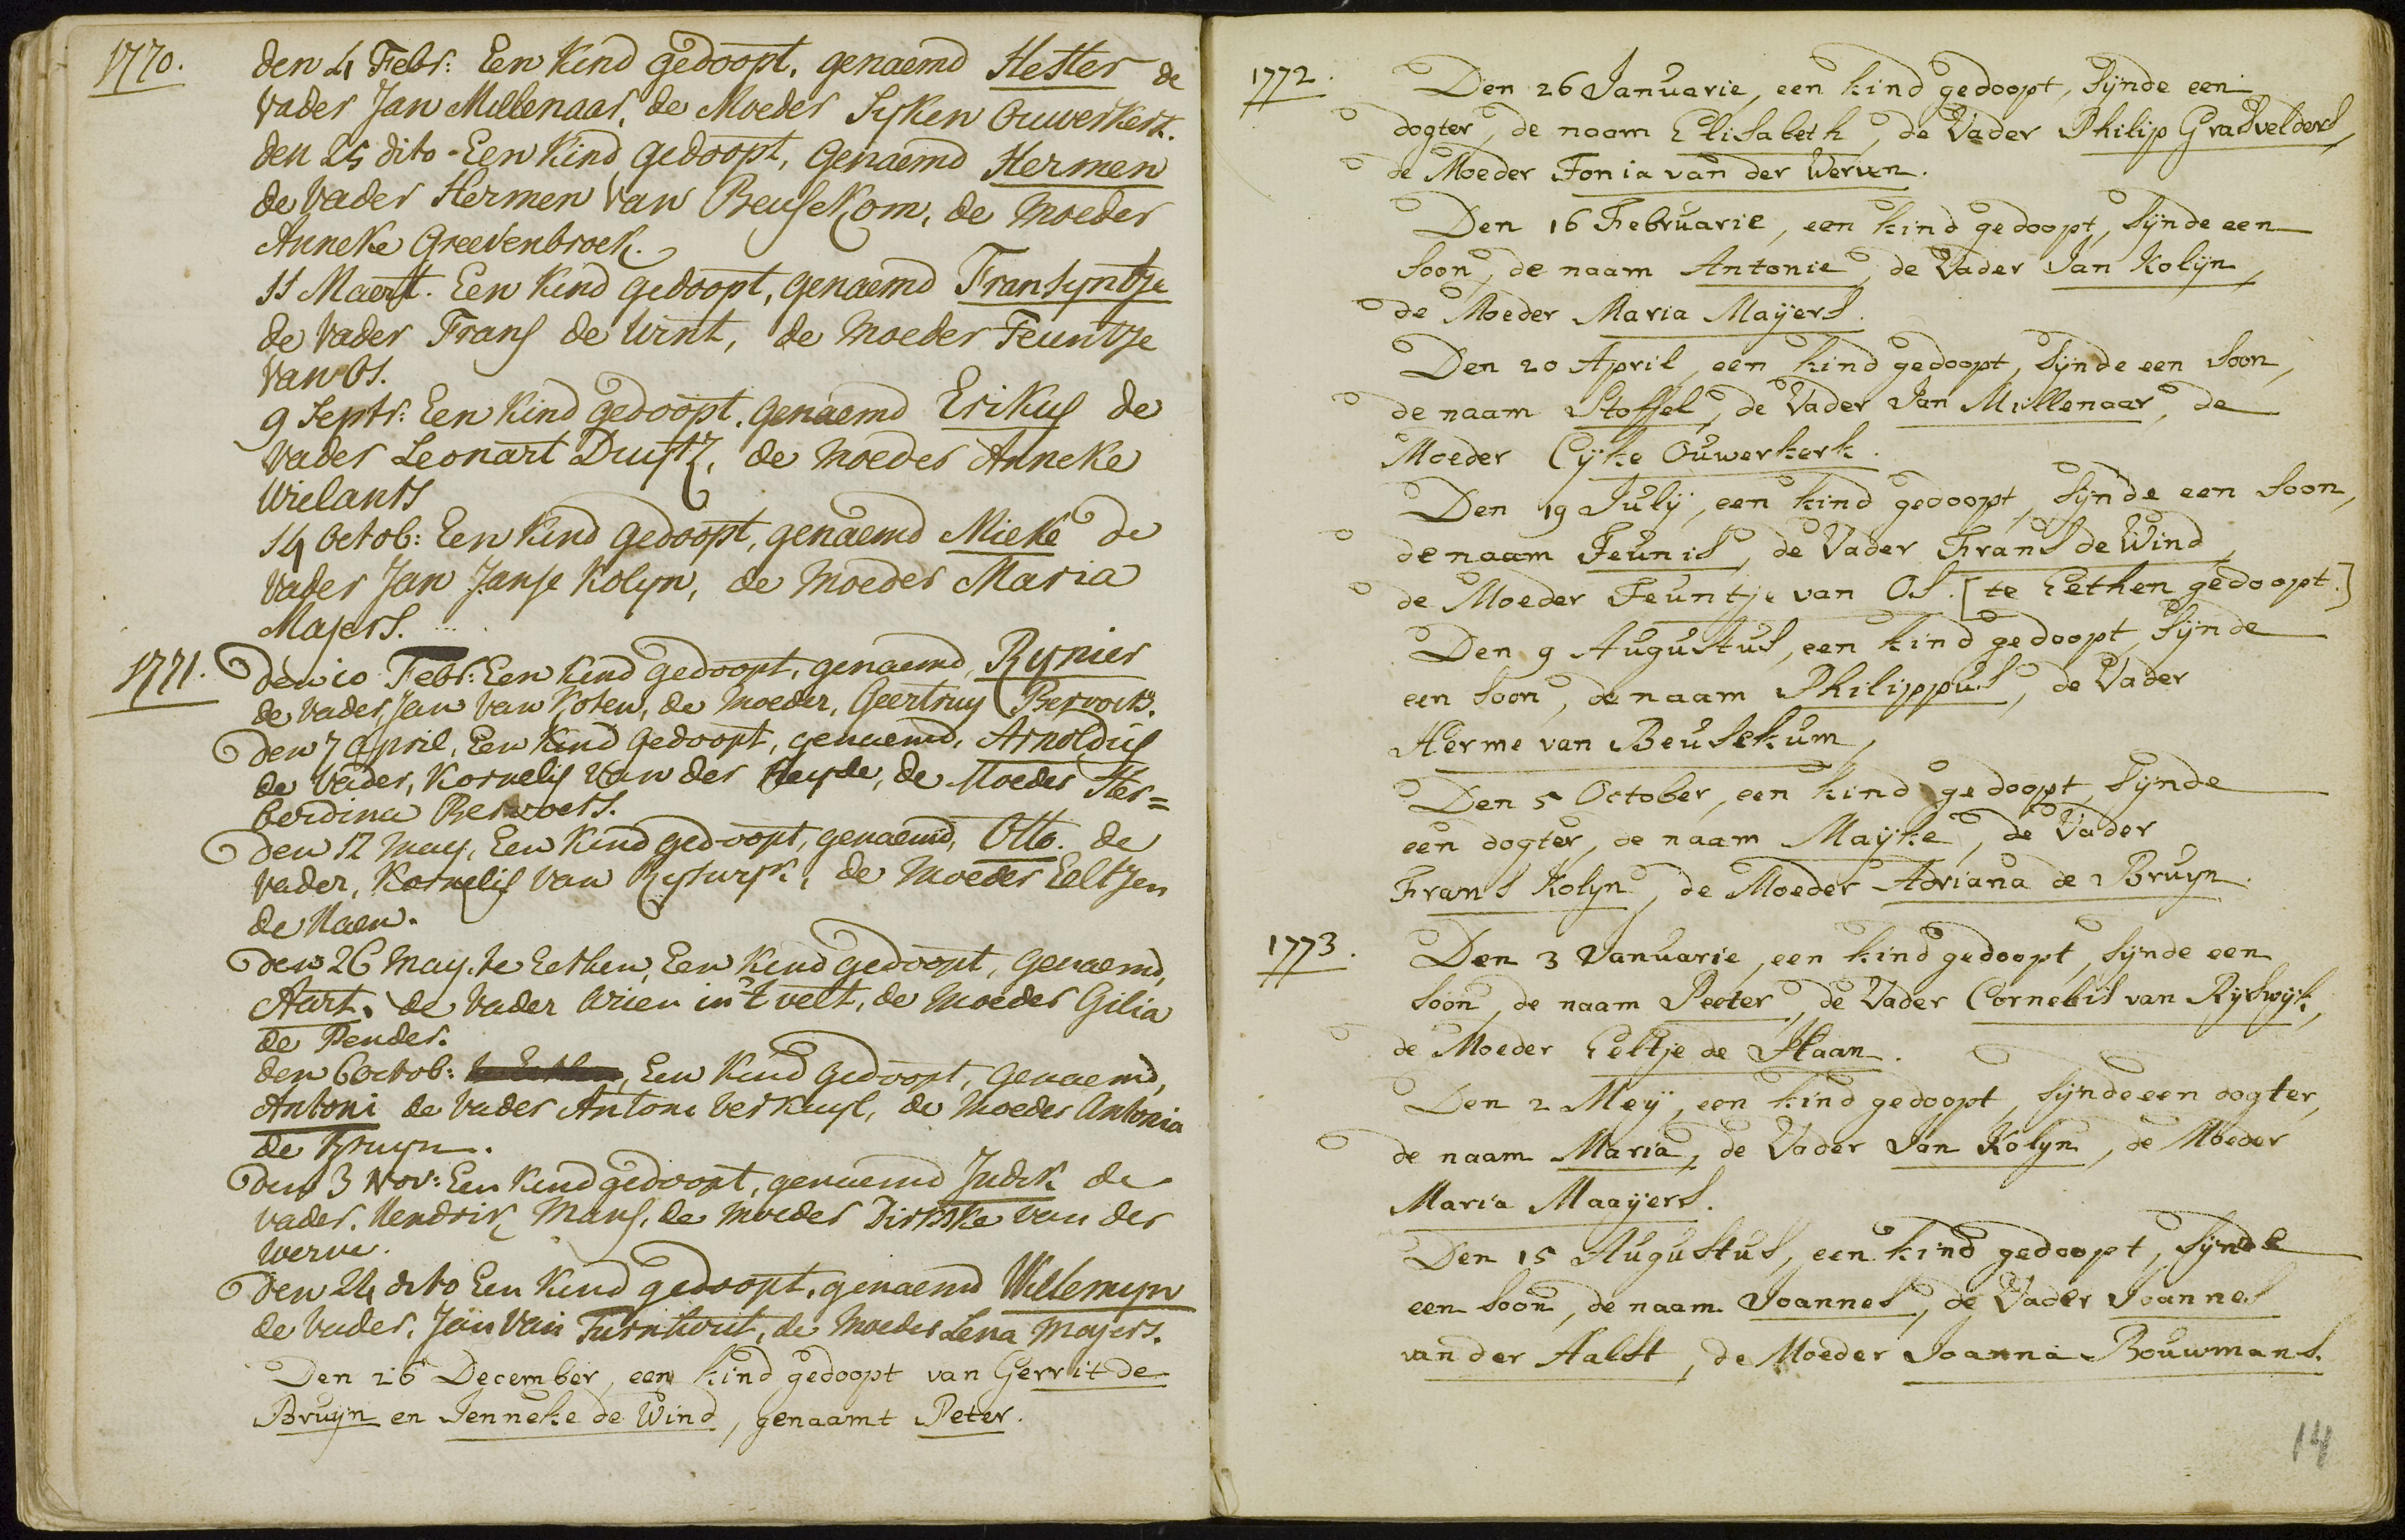 1770.
den 4 Febr: Een Kind gedoopt, genaemd Hester de
vader Jan Millenaar, de Moeder Syken Ouwerkerk.
den 25 dito Een Kind gedoopt, genaemd Hermen
de vader Hermen van Beusekom, de moeder
Anneke Greevenbroek.
11 Maert. Een Kind gedoopt, genaemd Fransyntje
de vader Frans de Wint, de moeder Teuntje
van Os.
9 Septr: Een Kind gedoopt, genaemd Erikus de
vader Leonart Duystz, de moeder Anneke
Wielants
14 Octob: Een Kind gedoopt, genaemd Mieke de
vader Jan Janse Kolyn, de moeder Maria
Majers.
1771.
den 10 Febr: Een Kind gedoopt, genaemd, Rynier
de vader, Jan van Koten, de moeder, Geertruy Bervoets.
den 7 april, Een Kind gedoopt, genaemd, Arnoldus
de vader, Kornelis van der Heyde, de Moeder Her=
berdina Bervoets.
den 12 may, Een Kind gedoopt, genaemd, Otto. de
vader, Kornelis van Ryswyk, de moeder Eeltjen
de Haen.
den 26 may, te Eethen, Een Kind gedoopt, genaemd,
Aart, de vader Arien in 't velt, de moeder Gilia
de Pender.
den 6 octob: Een Kind gedoopt, genaemd,
Antoni de vader Antoni Verkuyl, de moeder Antonia
de Bruyn.
den 3 Nov: Een Kind gedoopt, genaemd Judik de
vader, Hendrik Mans, de moeder Dirkske van der
Werve.
den 24 dito Een Kind gedoopt, genaemd Willemyn
de vader, Jan van Turnhout, de Moeder Lena Majers.
Den 26 December, een kind gedoopt van Gerrit de
Bruÿn en Jenneke de Wind, genaamt Peter.
1772.
Den 26 Januarie, een kind gedoopt, sÿnde een
dogter, de naam Elisabeth, de Vader Philip Gradvelders,
de Moeder Tonia van der Werven.
Den 16 Februarie, een kind gedoopt, sÿnde een
soon, de naam Antonie, de Vader Jan Kolÿn,
de Moeder Maria Maÿers.
Den 20 April, een kind gedoopt, sÿnde een soon,
de naam Stoffel, de Vader Jan Millenaar, de
Moeder Cÿke Ouwerkerk.
Den 19 Julÿ, een kind gedoopt, sÿnde een soon,
de naam Teunis, de Vader Frans de Wind,
de Moeder Teuntje van Os. [te Eethen gedoopt.]
Den 9 Augustus, een kind gedoopt, sÿnde
een soon, de naam Philippus, de Vader
Herme van Beusekum,
Den 5 October, een kind gedoopt, sÿnde
een dogter, de naam Maÿke, de Vader
Frans Kolÿn, de Moeder Adriana de Bruÿn.
1773.
Den 3 Januarie, een kind gedoopt, sÿnde een
soon, de naam Peeter, de Vader Cornelis van Rÿswÿk,
de Moeder Eeltje de Haan.
Den 2 Meÿ, een kind gedoopt, sÿnde een dogter,
de naam Maria, de Vader Jan Kolÿn, de Moeder
Maria Maaÿers.
Den 15 Augustus, een kind gedoopt, sÿnde
een soon, de naam Joannes, de Vader Joannes
van der Aalst, de Moeder Joanna Bouwmans.
14